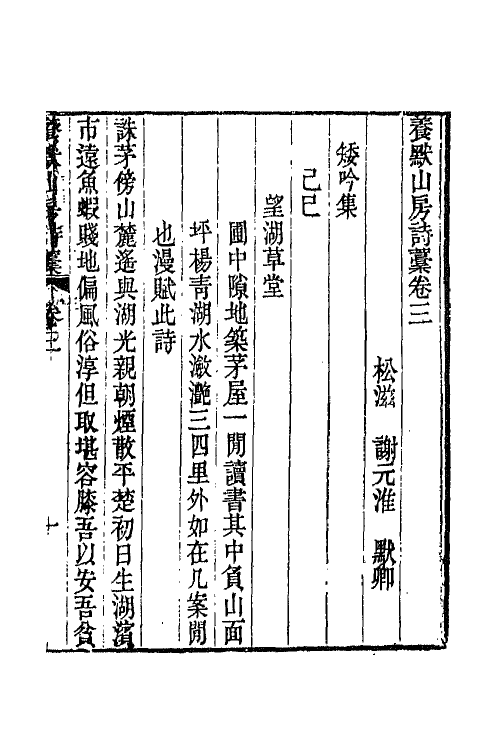 養默山房詩藁卷三
松滋　謝元淮　默卿
矮吟集
己巳
望湖草堂
圃中隙地築茅屋一閒讀書其中負山面
坪楊青湖水潋灔三四里外如在几案閒
也漫賦此詩
誅茅傍山麓遙與湖光親朝煙散平楚初日生湖濱
市遠魚蝦賤地偏風俗淳但取堪容膝吾以安吾貧
養默山房詩藁　卷三　一